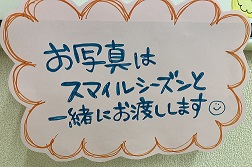 お写真は
スマイルシーズンと
一緒にお渡しします☺